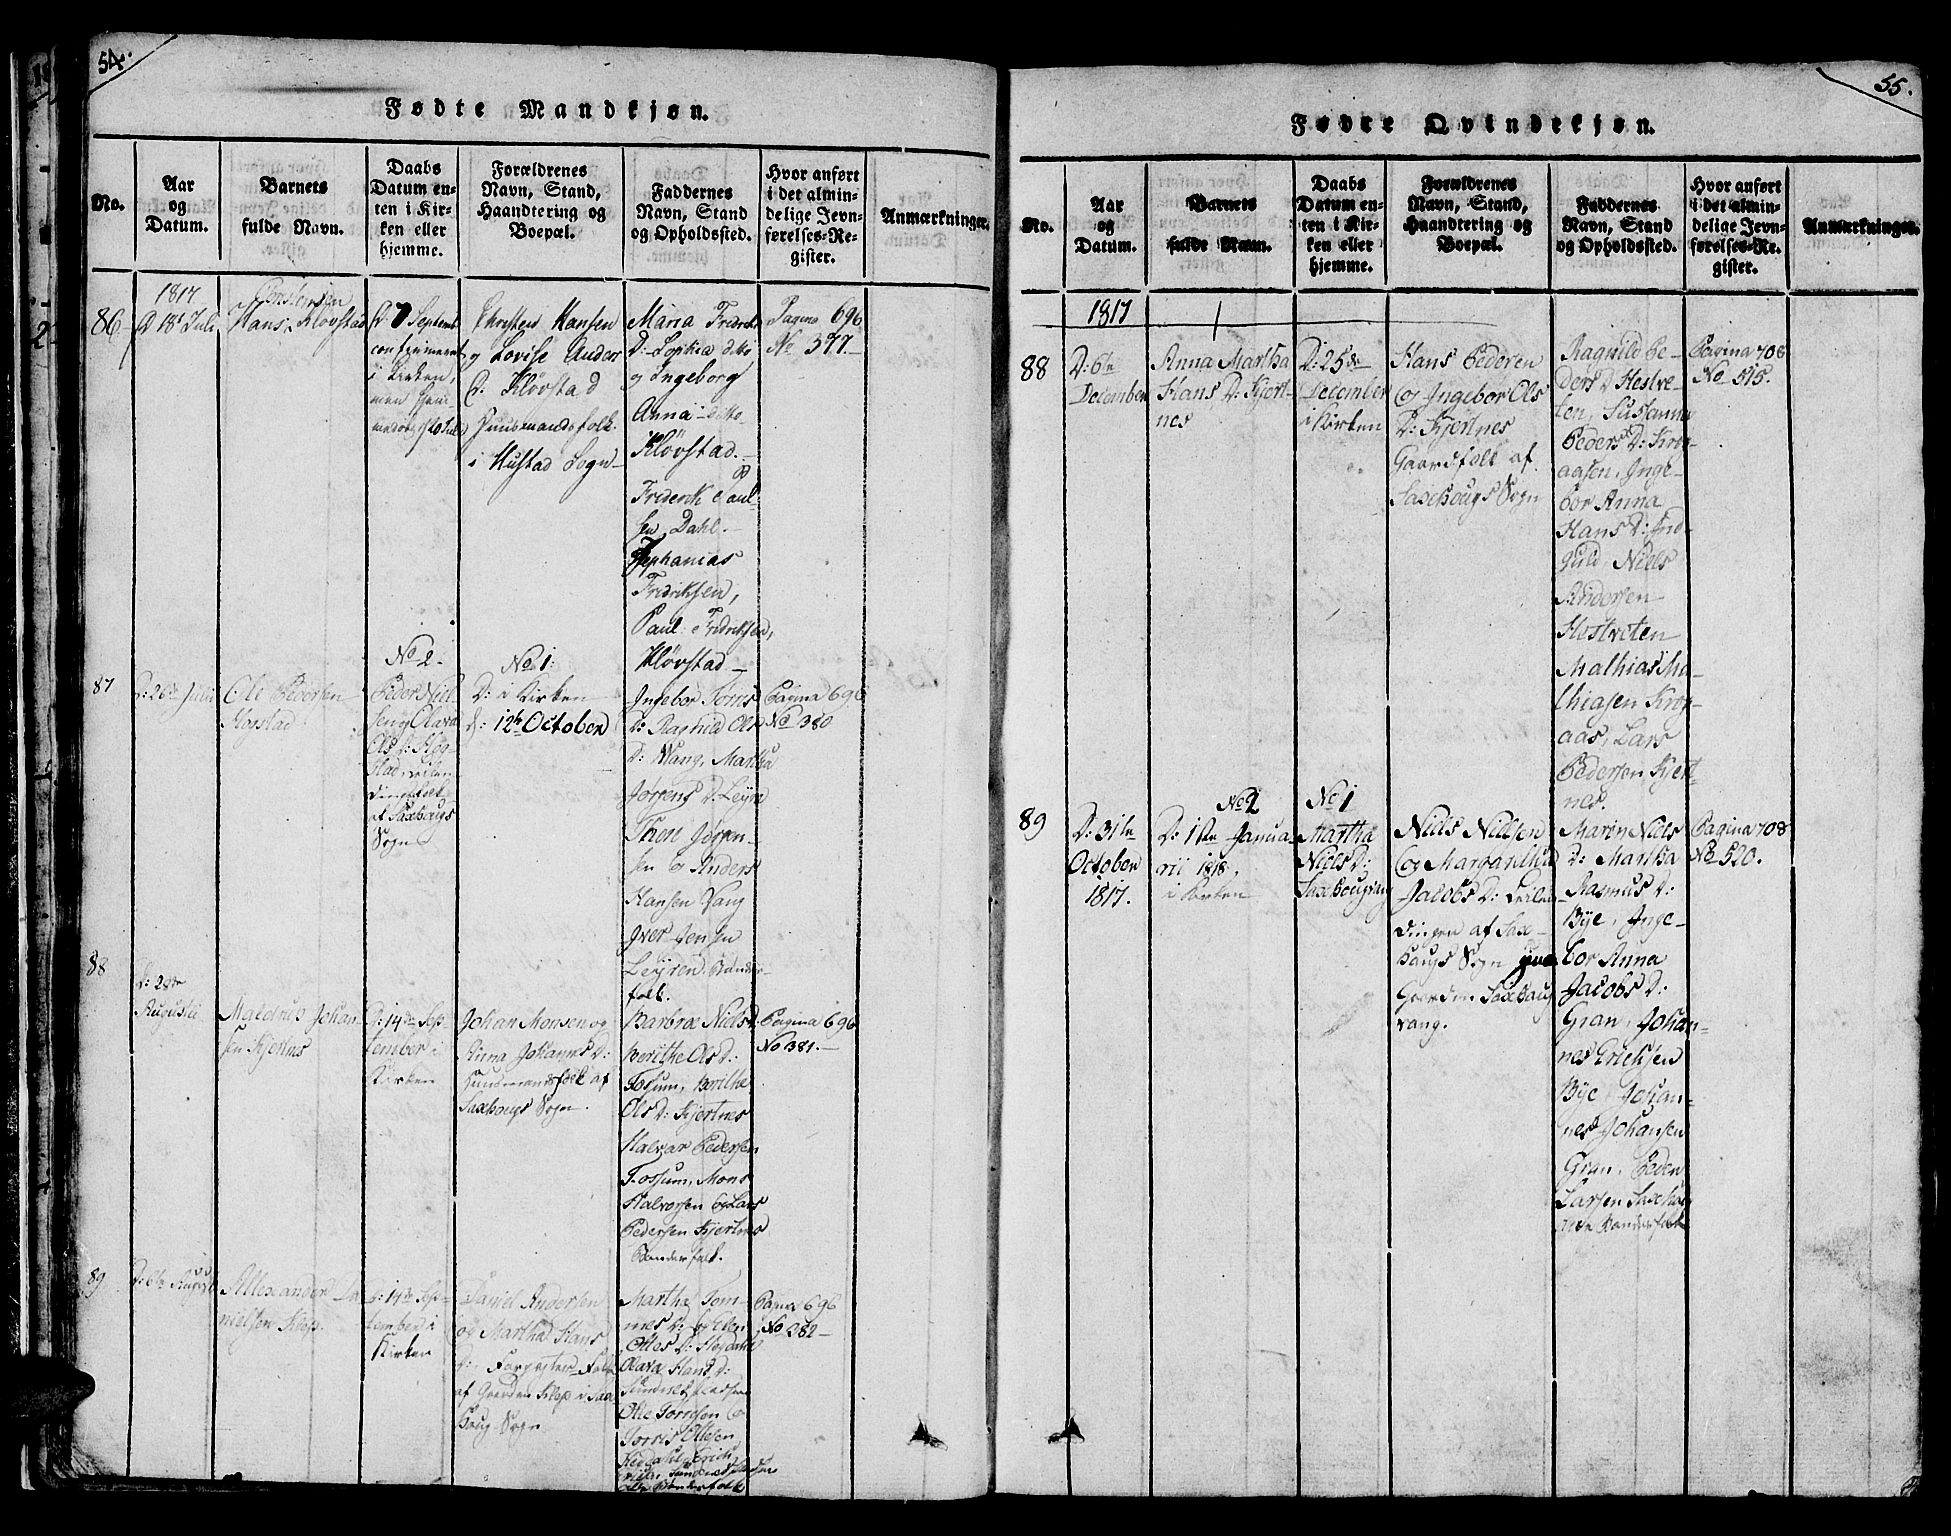 54.
Fødte Mandkjøn.
No.
Aar
og
Datum.
Barnets
fulde Navn.
Daabs
Datum en-
ten i Kir-
ken eller
hjemme.
Forældrenes
Navn, Stand,
Haandtering og
Boepæl.
Faddernes
Navn, Stand
og Opholdssted.
Hvor anført
i det almin-
delige Jevn-
førelses-Re-
gister.
Anmærkninger.
86
1817
D 18t Juli
Christensen
Hans Klövstad
D 7 Septemb
confirmeret
i Kirken,
men hjem
Christen Hansen
og Lovise Anders
D. Klövstad
Huusmandsfolk
i Hustad Sogn
Maria Fredriks
D: Sophia ditto
og Ingeborg
Anna ditto
Klövstad.
Frederik Paul-
sen Dahl.
Zephanias
Fredriksen,
Paul Fredriksen,
Klövstad
Pagina 696
No 377.
87
D: 26de Julii
Ole Pedersen
Hogstad
No 2.
Peder Niel
sen og Olava
Ols D: Hog-
stad,
af Saxhougs
Sogn
No 1:
D: i Kirken
d: 12te October
Ingebor Torris
D: Ragnild Ols
D: Wang, Martha
Jörgens D: Leÿra
Thore Jörgen-
sen og Anders
Hansen Vang
Iver Jensen
Leÿren. Bönder-
folk.
Pagina 696
No 380
88
D: 28de
Augusti
Johan
sen Kjertnes
D: 14de Sep-
tember i
Kirken
Johan Monsen og
Anna Johannes D:
Huusmandsfolk af
Saxhougs Sogn.
Barbroe Niels D.
Berithe Ols D:
Fossum, Berithe
Ols D: Kjertnes
Halvor Pedersen
Fossum, Mons
Halvorsen og Lars
Pedersen Kjertnes
Bönderfolk.
Pagina 696
No 381.
89
D: 6te August
Allexander Da
nielsen Klep.
D: 14de Sep-
tember i
Kirken
Daniel Andersen
og Martha Hans
D: Forpagter Folk
af Gaarden Klep i Sax
houg Sogn
Martha Tom-
mes D: Ellen
Olles D:
Olava Hans D:
Olle Torresen
Torris Ollesen
Bönderfolk
Pagina 696
No 382
55.
Fødte Qvindekjøn.
No.
Aar
og
Datum.
Barnets
fulde Navn.
Daabs
Datum en-
ten i Kir-
ken eller
hjemme.
Forældrenes
Navn, Stand,
Haandtering og
Boepæl.
Faddernes
Navn, Stand
og Opholdssted.
Hvor anført
i det almin-
delige Jevn-
førelses-Re-
gister.
Anmærkninger.
1817
88
D: 6te
December
Anna Martha
Hans D: Kjert-
nes
D: 25de
December
i Kirken
Hans Pedersen
og Ingebor Ols
D: Kjertnes
Gaardsfolk af
Saxhougs Sogn
Ragnild Pe-
ders D Hestve-
ten, Susanna
Peders D: Krog-
aasen, Inge-
bor Anna
Hans D: Ind-
guld Niels
Andersen
Hestveten
Mathias Ma-
thiasen Krog-
aas, Lars
Pedersen Kjert-
nes.
Pagina 708
No 515.
89
D: 31te
October
1817.
No 2
D: 1ste Janua-
rii 1818,
i Kirken
No 1
Martha
Niels D:
Saxhougvang
Niels Nielsen
og Margaretha
Jacobs D:
af Sax-
hougs Sogn
Gaarden Saxhoug
vang.
Maren Niels
D: Martha
Rasmus D:
Bÿe, Inge-
bor Anna
Jacobs D:
Gran, Johan-
nes Ericksen
Bÿe, Johan-
nes Johansen
Gran, Peder
Larsen Saxhoug
Bönderfolk
Pagina 708
No 520.